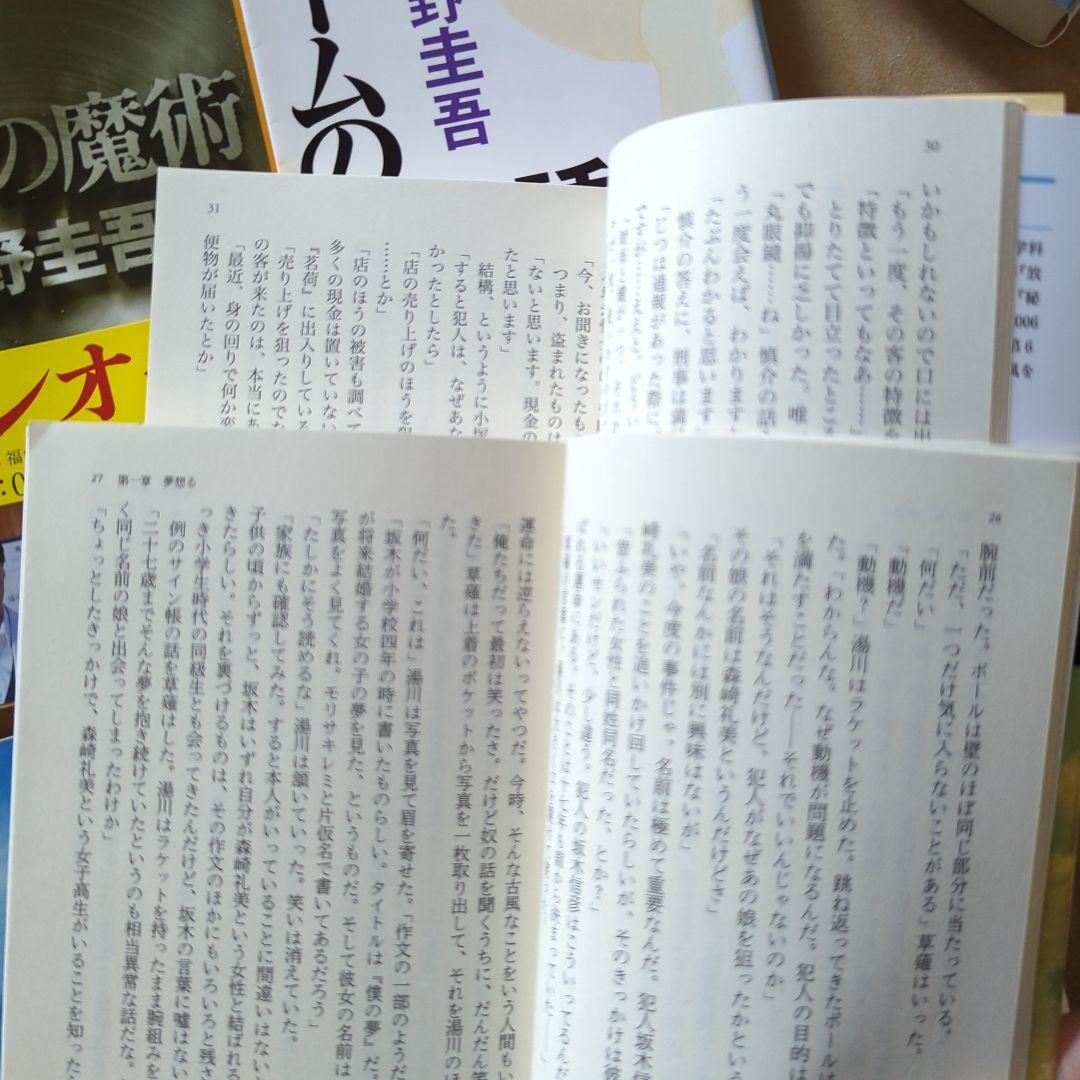 の魔術
野圭吾
ームの
野圭吾
30
いかもしれないので口には出
「もう一度、その客の特徴を
「特徴といってもなあ……」
とりたてて目立ったところ
でも抑揚に乏しかった。唯
「丸眼鏡……ね」慎介の話を
う一度会えば、わかります
「たぶんわかると思います」
慎介の答えに、刑事は満
「じつは通報があった際に、
ですが……ええと、
31
「今、お聞きになったも
つまり、盗まれたものは
「ないと思います。現金の
たと思います」
結構、というように小塚
「すると犯人は、なぜあな
かったとしたら」
「店の売り上げのほうを狙
……とか」
「店のほうの被害も調べて
多くの現金は置いていない
『茗荷』に出入りしている
「売り上げを狙ったのでた
の客が来たのは、本当にあ
「最近、身の回りで何か変
便物が届いたとか」
学科
『放
『秘
2006
第6
風を
26
腕前だった。ボールは壁のほぼ同じ部分に当たっている。
「ただ、一つだけ気に入らないことがある」草薙はいった。
「何だい」
「動機だ」
「動機？」湯川はラケットを止めた。跳ね返ってきたボールは
た。「わからんな。なぜ動機が問題になるんだ。犯人の目的は
を満たすことだった――それでいいんじゃないのか」
「それはそうなんだけど、犯人がなぜあの娘を狙ったかという
その娘の名前は森崎礼美というんだけどさ」
「名前なんかには別に興味はないが」
「いや、今度の事件じゃ、名前は極めて重要なんだ。犯人坂木信
崎礼美のことを追いかけ回していたらしいが、そのきっかけは彼
「昔ふられた女性と同姓同名だった、とか？」
「いいセンだけど、少し違う。犯人の坂木信彦はこういってるんだ
27 第一章 夢想る
運命には逆らえないってやつだ。今時、そんな古風なことをいう人間もい
「俺たちだって最初は笑ったさ。だけど奴の話を聞くうちに、だんだん笑
きた」草薙は上着のポケットから写真を一枚取り出して、それを湯川のほ
た。
「何だい、これは」湯川は写真を見て眉を寄せた。「作文の一部のようだ
「坂木が小学校四年の時に書いたものらしい。タイトルは『僕の夢』だ。
が将来結婚する女の子の夢を見た、というものだ。そして彼女の名前は
写真をよく見てくれ。モリサキレミと片仮名で書いてあるだろう」
「たしかにそう読めるな」湯川は頷いていった。笑いは消えていた。
「家族にも確認してみた。すると本人がいっていることに間違いはない
子供の頃からずっと、坂木はいずれ自分が森崎礼美という女性と結ばれる
きたらしい。それを裏づけるものは、その作文のほかにもいろいろと残さ
っき小学生時代の同級生とも会ってきたんだけど、坂木の言葉に嘘はない
例のサイン帳の話を草薙はした。湯川はラケットを持ったまま腕組みを
「二十七歳までそんな夢を抱き続けていたというのも相当異常な話だな。
く同じ名前の娘と出会ってしまったわけか」
「ちょっとしたきっかけで、森崎礼美という女子高生がいることを知った